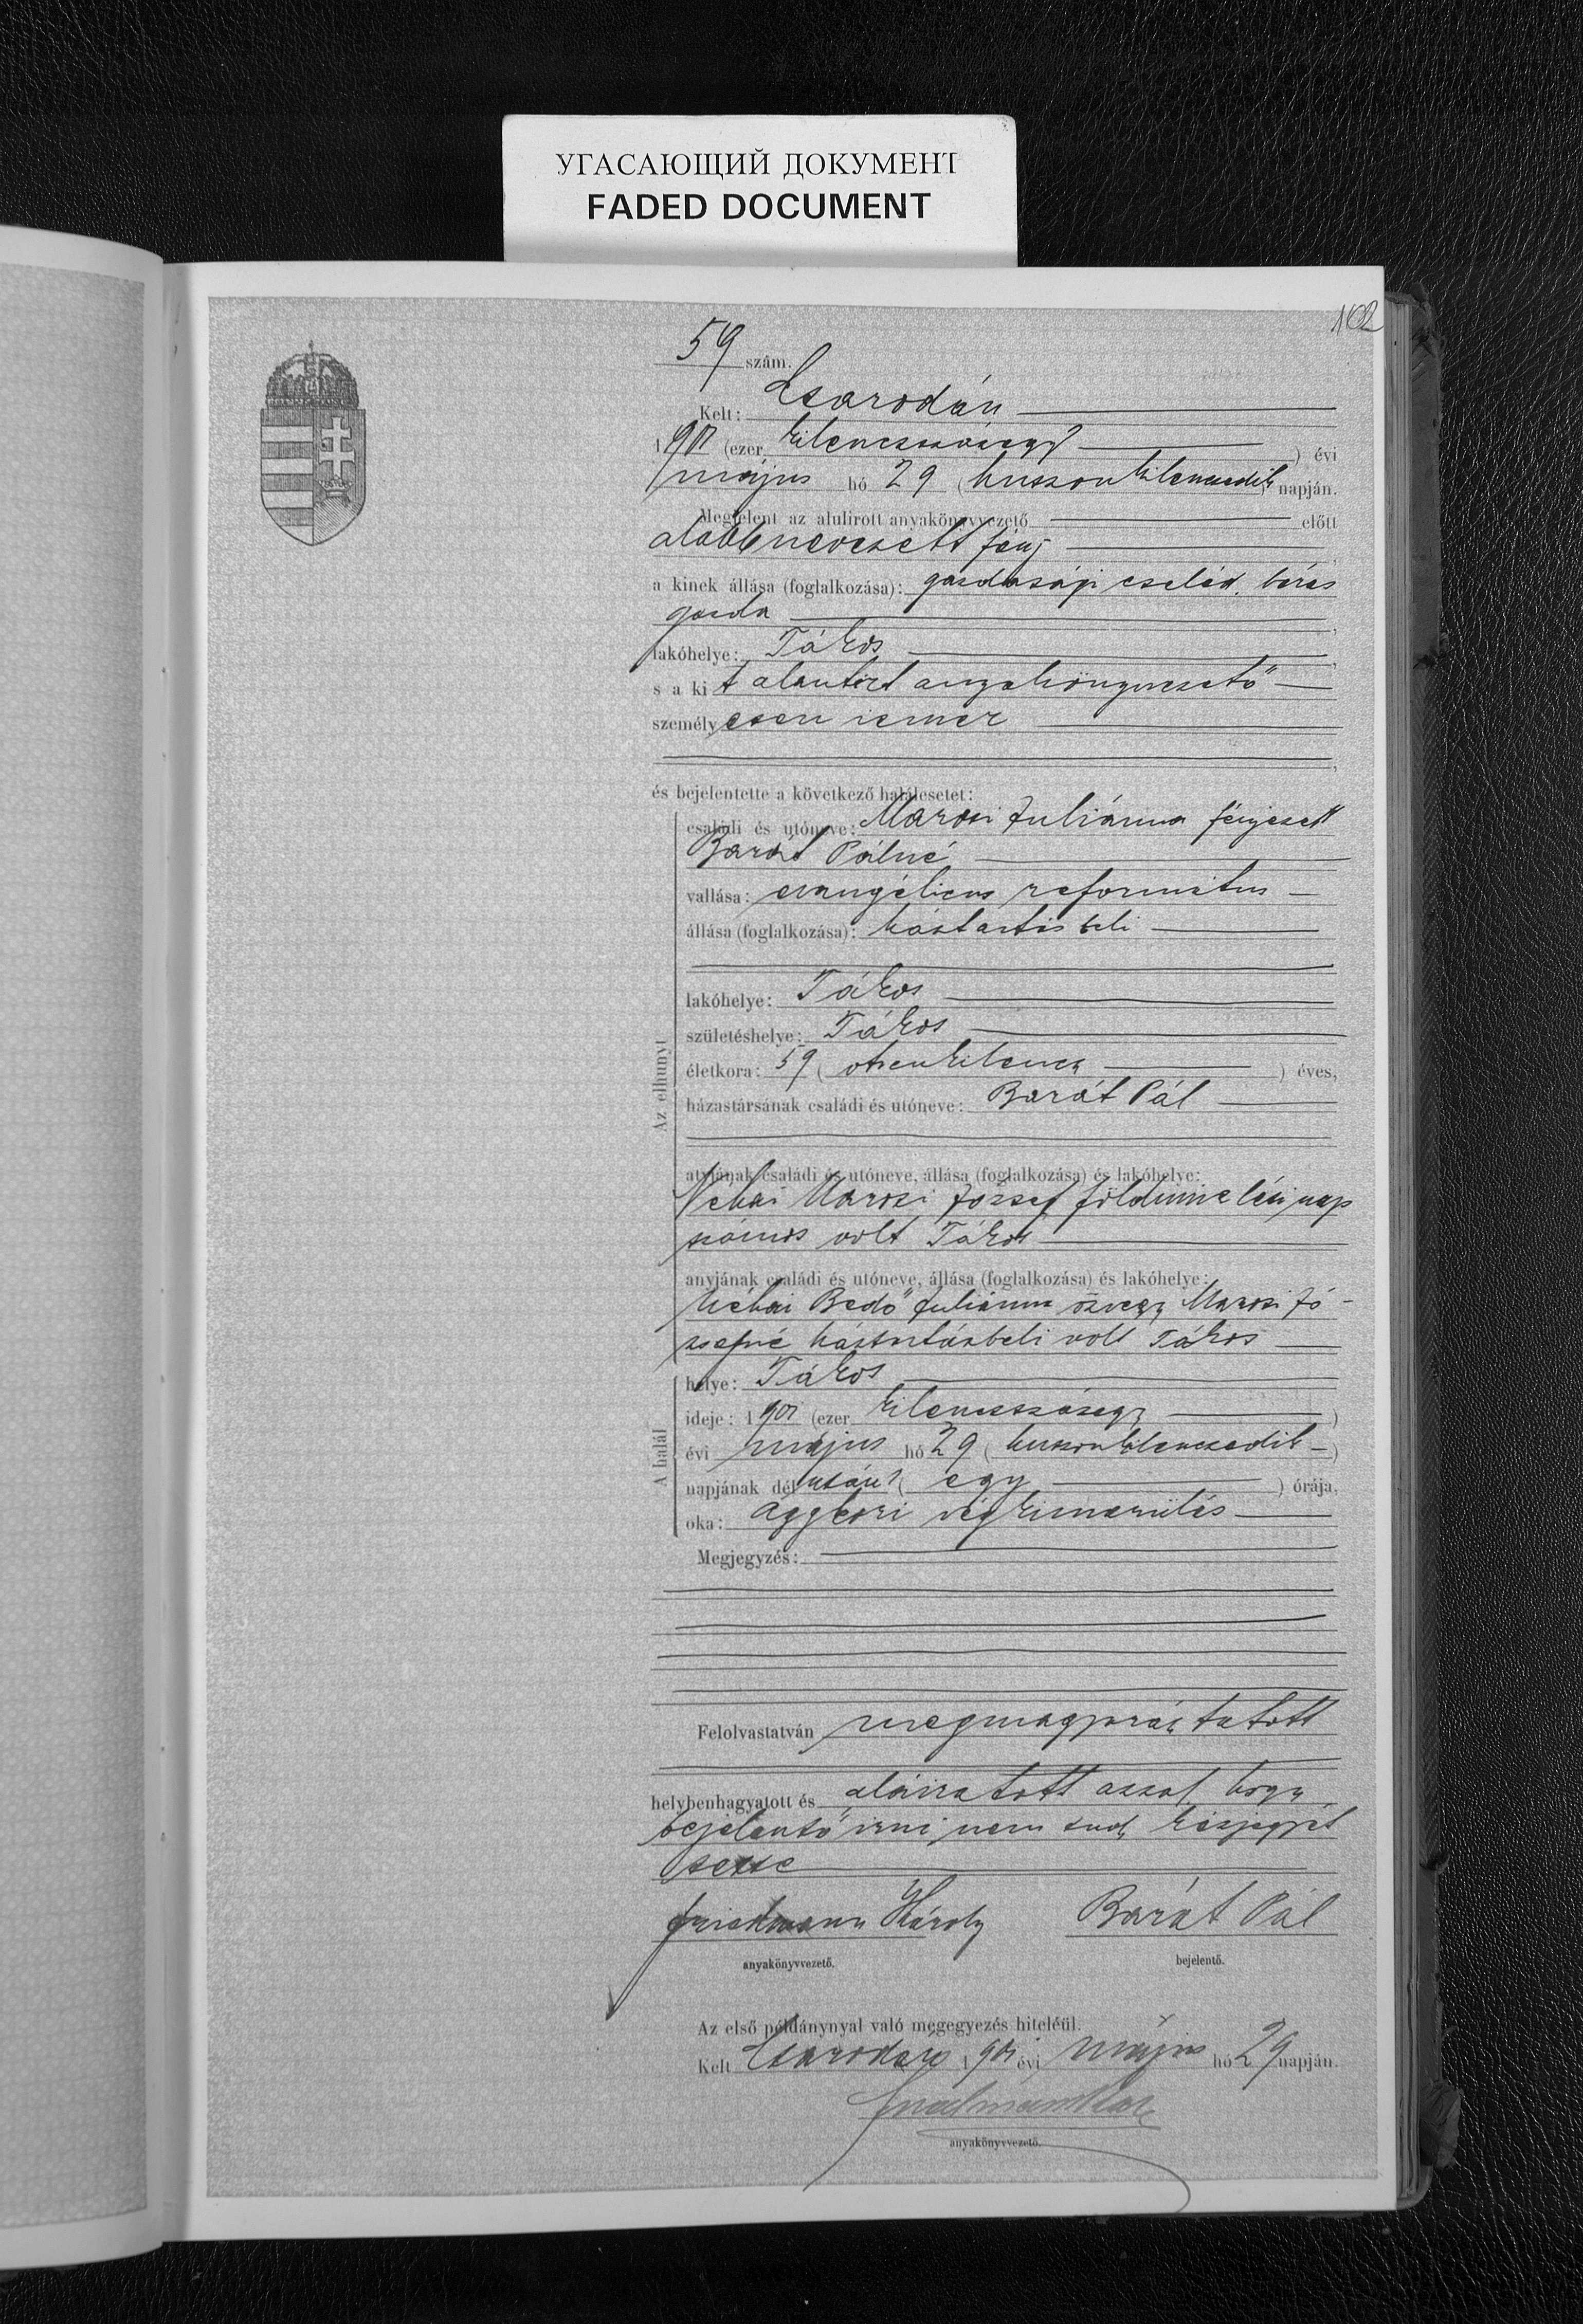 УГАСАЮЩИЙ ДОКУМЕНТ
FADED DOCUMENT
102
59 szám.
Kelt: Csarodán
1901 (ezer kilenczszázegy) évi
május hó 29 (huszonkilenczedik) napján.
Megjelent az alulirott anyakönyvvezető előtt
alább nevezett férj
a kinek állása (foglalkozása): gazdasági cseléd, béres
gazda
lakóhelye: Tákos
s a kit alantirt anyakönyvvezető
személyesen ismer
és bejelentette a következő halálesetet:
családi és utóneve: Marosi Juliánna férjezett
Barát Pálné
vallása: evangélicus református
állása (foglalkozása): háztartásbeli
lakóhelye: Tákos
születéshelye: Tákos
életkora: 59 (ötvenkilencz) éves,
Az elhunyt
házastársának családi és utóneve: Barát Pál
atyjának családi és utóneve, állása (foglalkozása) és lakóhelye:
Néhai Marosi József földmivelési nap
számos volt Tákos
anyjának családi és utóneve, állása (foglalkozása) és lakóhelye:
Néhai Bedő Juliánna özvegy Marosi Jó-
zsefné háztartásbeli volt Tákos
helye: Tákos
ideje: 1901 (ezer kilenczszázegy)
évi május hó 29 (huszonkilenczedik)
A halál
napjának délután 1 (egy) órája,
oka: aggkori végkimerülés
Megjegyzés:
Felolvastatván megmagyaráztatott
helybenhagyatott és aláiratott azzal, hogy
bejelentő irni nem tud, kézjegyét
tette
Friedmann Károly Barát Pál
anyakönyvvezető. bejelentő.
Az első példánynyal való megegyezés hiteléül.
Kelt Csarodán 1901 évi május hó 29 napján.
anyakönyvvezető.